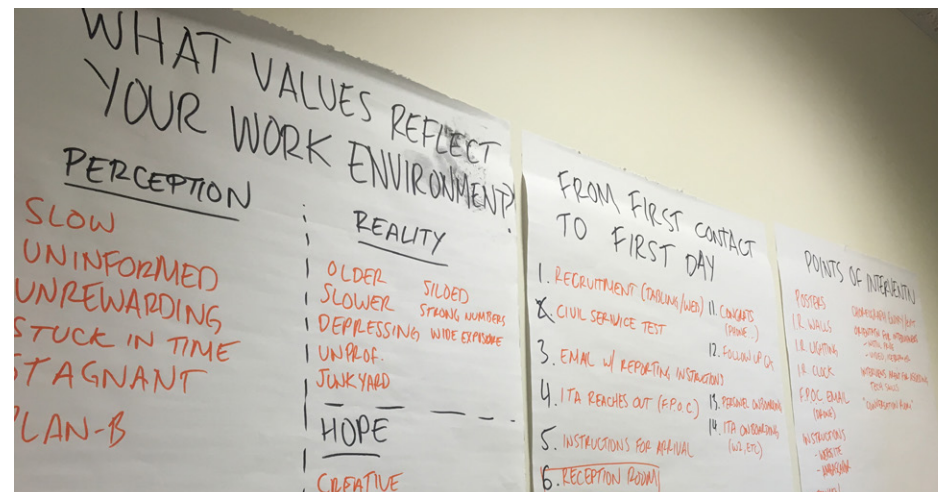 WHAT VALUES REFLECT
YOUR WORK ENVIRONMENT?
PERCEPTION
SLOW
UNINFORMED
UNREWARDING
STUCK IN TIME
STAGNANT
PLAN-B
REALITY
OLDER SILOED
SLOWER STRONG NUMBERS
DEPRESSING WIDE EXPOSURE
UNPROF.
JUNKYARD
HOPE
CREATIVE
FROM FIRST CONTACT
TO FIRST DAY
1. RECRUITMENT (TABLING/WEB)
2. CIVIL SERVICE TEST
3. EMAIL W/ REPORTING INSTRUCTIONS
4. ITA REACHES OUT (F.P.O.C)
5. INSTRUCTIONS FOR ARRIVAL
6. RECEPTION ROOM
11. CONGRATS
(PHONE..)
12. FOLLOW UP QS
13. PERSONEL ONBOARDING
14. ITA ONBOARDING
(W2, ETC)
POINTS OF INTERVENTN
POSTERS
I.R. WALLS
I.R. LIGHTING
I.R. CLOCK
F.P.O.C EMAIL
(DRONE)
INSTRUCTIONS
- WEBSITE
TECH SKILLS
"CONVERSATION ROOM"